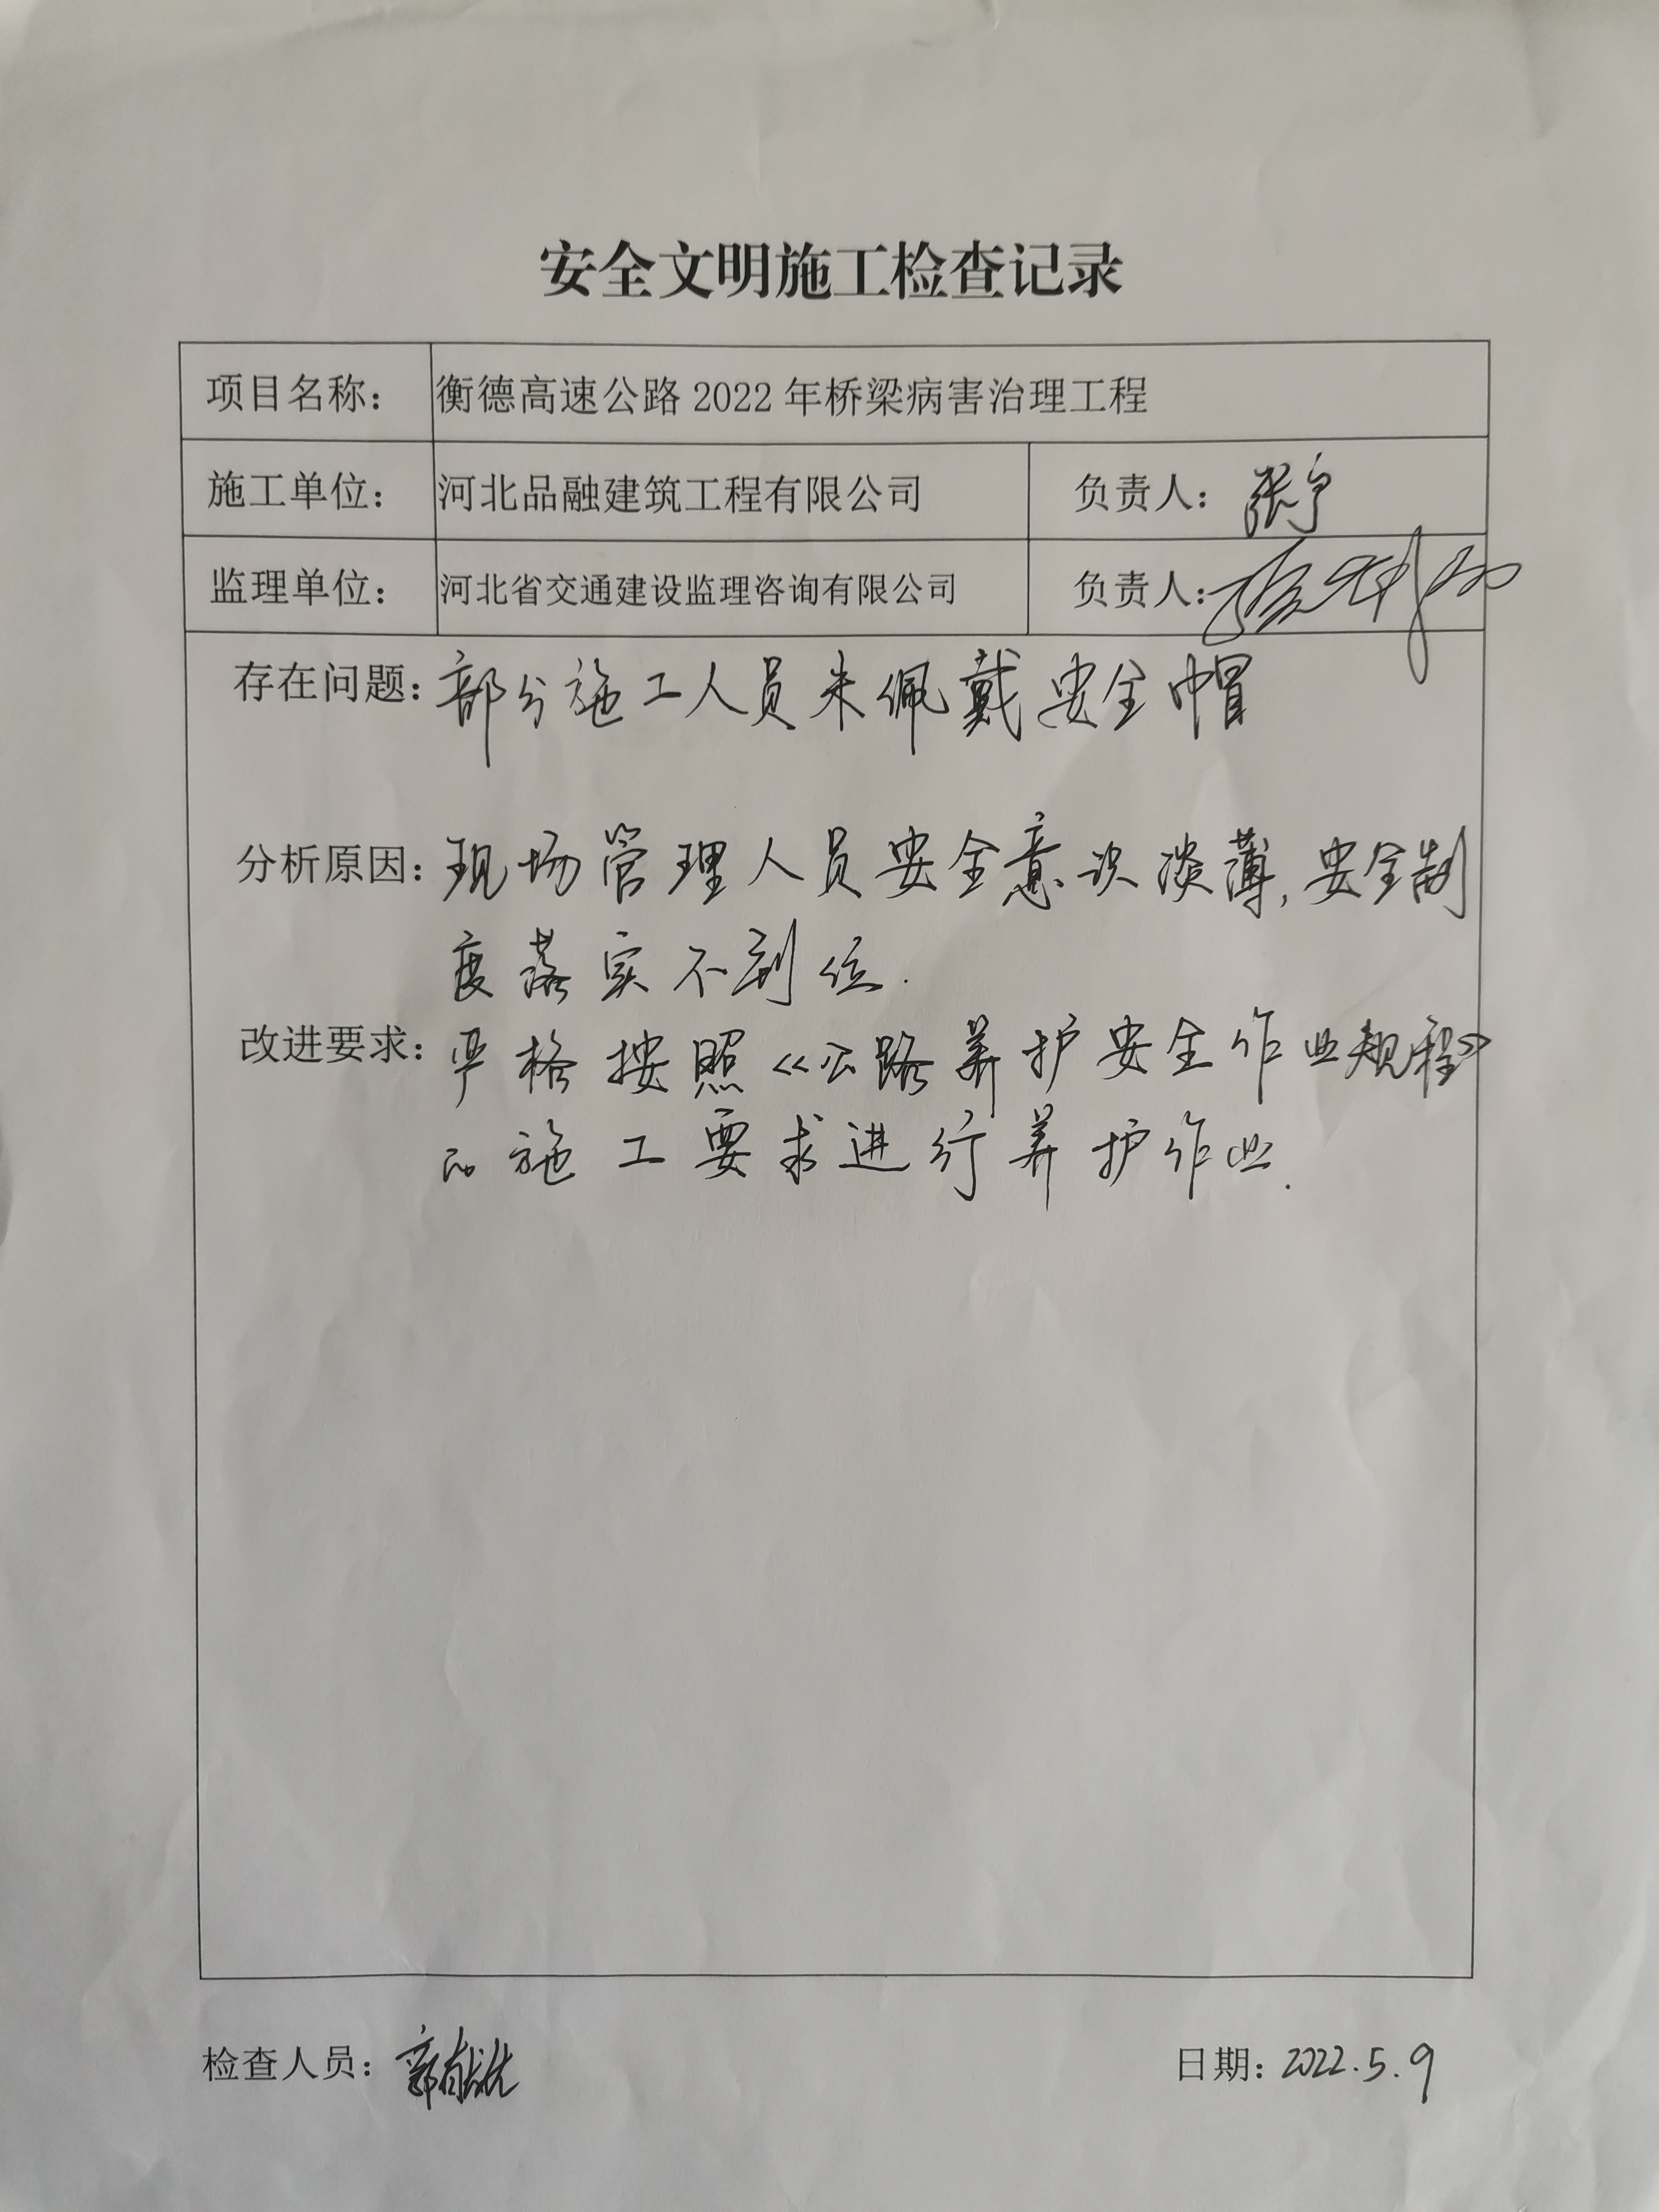 安全文明施工检查记录
项目名称： 衡德高速公路 2022 年桥梁病害治理工程
施工单位： 河北品融建筑工程有限公司 负责人：张宁
监理单位： 河北省交通建设监理咨询有限公司 负责人：
存在问题：部分施工人员未佩戴安全帽
分析原因：现场管理人员安全意识淡薄，安全制
度落实不到位．
改进要求：严格按照《公路养护安全作业规程》
的施工要求进行养护作业．
检查人员： 日期：2022.5.9